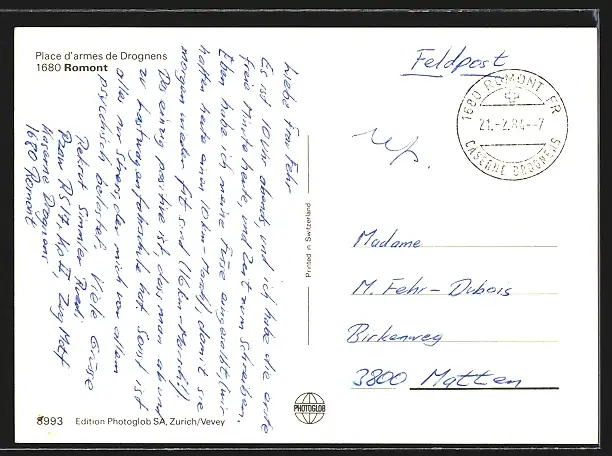 Place d'armes de Drognens
1680 Romont
Feldpost
1680 ROMONT FR
21.-2.84.-7
CASERNE DROGNENS
Liebe Frau Fehr
Es ist 10 Uhr abends, und ich habe die erste
freie Minute heute, und Zeit zum schreiben.
Eben habe ich meine Füsse eingesalbt, (wir
hatten heute einen 10 km-Marsch), damit sie
morgen wieder fit sind (16 km-Marsch!)
Das einzig positive ist, dass man ab und
zu Lastwagenfahrschule hat. Sonst ist
alles nur Stress, der mich vor allem
psychisch belastet. Viele Grüsse
Rekrut Simmler Ruedi
Kaserne Drognens
1680 Romont
Madame
M. Fehr-Dubois
Birkenweg
3800 Matten
Printed in Switzerland
PHOTOGLOB
8993 Edition Photoglob SA, Zurich/Vevey